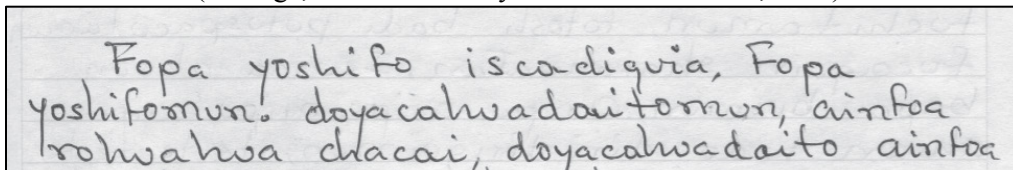 Fopa yoshifo iscadiquia, Fopa
yoshifomun. doyacahuadaitomun, ainfoa
rohuahua chacai, doyacahuadaito ainfoa